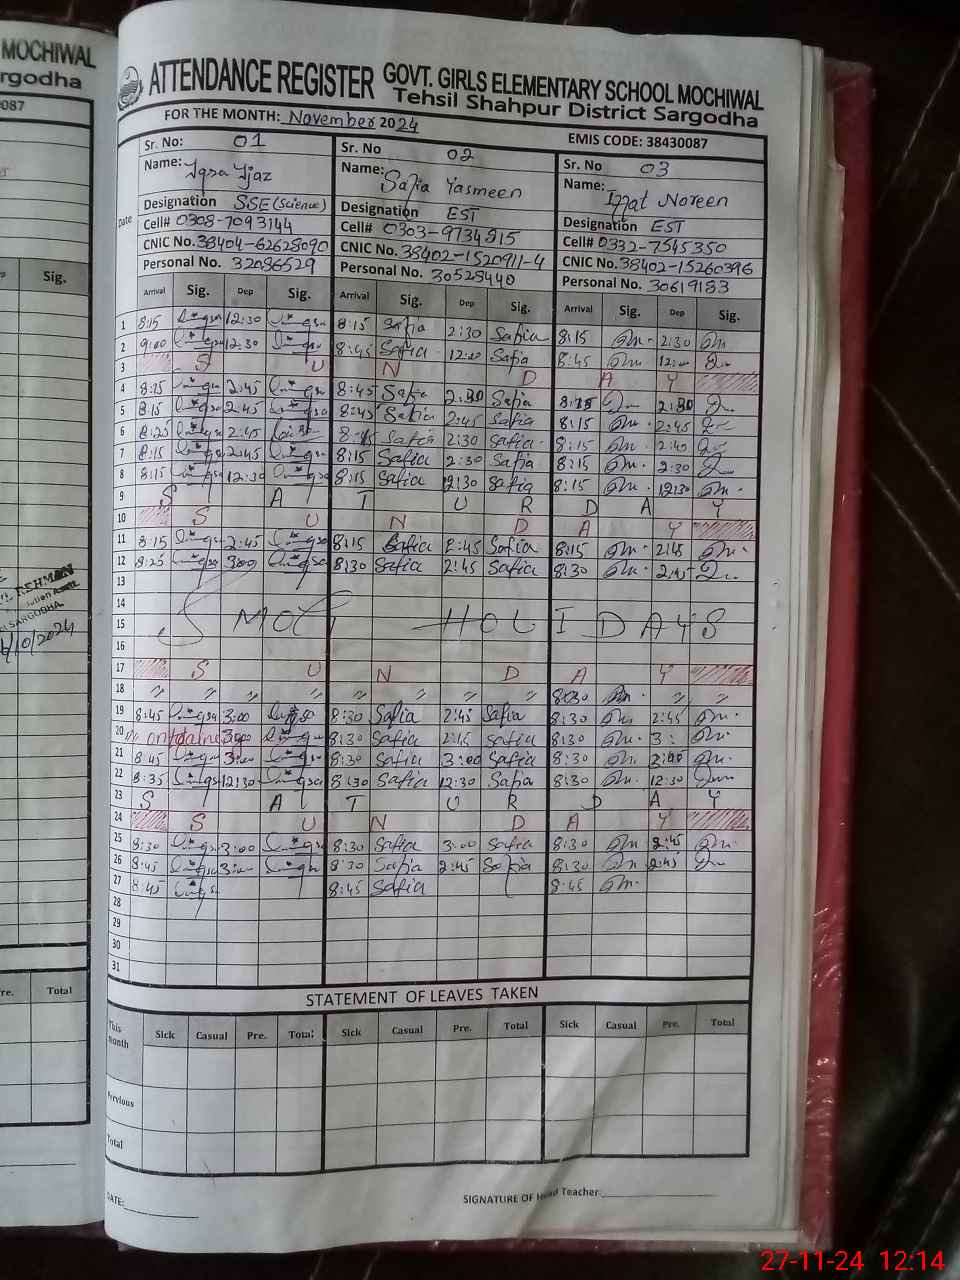 MOCHIWAL
argodha
ATTENDANCE REGISTER GOVT. GIRLS ELEMENTARY SCHOOL MOCHIWAL
Tehsil Shahpur District Sargodha
FOR THE MONTH: November 2024 EMIS CODE: 38430087
Date
Sr. No: 01 Sr. No 02 Sr. No 03
Name: Iqsa Ijaz Name: Safia Yasmeen Name: Izzat Noreen
Designation SSE (Science) Designation EST Designation EST
Cell# 0308-7093144 Cell# 0303-9734915 Cell# 0332-7545350
CNIC No. 38404-62628090 CNIC No. 38402-1520911-4 CNIC No. 38402-15260396
Personal No. 32086529 Personal No. 30528440 Personal No. 30619183
Arrival Sig. Dep Sig. Arrival Sig. Dep Sig. Arrival Sig. Dep Sig.
1 8:15 12:30 8:15 Safia 2:30 Safia 8:15 2:30
2 9:00 12:30 8:45 Safia 12:00 Safia 8:45 12:00
3 S U N D A Y
4 8:15 2:45 8:45 Safia 2:30 Safia 8:15 2:30
5 8:15 2:45 8:45 Safia 2:45 Safia 8:15 2:45
6 8:25 2:45 8:15 Safia 2:30 Safia 8:15 2:40
7 8:15 2:45 8:15 Safia 2:30 Safia 8:15 2:30
8 8:15 12:30 8:15 Safia 12:30 Safia 8:15 12:30
9 S A T U R D A Y
10 S U N D A Y
11 8:15 2:45 8:15 Safia 2:45 Safia 8:15 2:45
12 8:25 3:00 8:30 Safia 2:45 Safia 8:30 2:45
13
14
15 SMOG HOLIDAYS
16
17 S U N D A Y
18 " " " " " " " " 8:30 " "
19 8:45 3:00 8:30 Safia 2:45 Safia 8:30 2:45
20 3:00 8:30 Safia 2:45 Safia 8:30 3:
21 8:45 3:00 8:30 Safia 3:00 Safia 8:30 2:00
22 8:35 12:30 8:30 Safia 12:30 Safia 8:30 12:30
23 S A T U R D A Y
24 S U N D A Y
25 8:30 3:00 8:30 Safia 3:00 Safia 8:30 2:45
26 8:45 3:00 8:30 Safia 2:45 Safia 8:30 2:45
27 8:45 8:45 Safia 8:45
28
29
30
31
STATEMENT OF LEAVES TAKEN
This month Sick Casual Pre. Total Sick Casual Pre. Total Sick Casual Pre. Total
Previous
Total
DATE: SIGNATURE OF Head Teacher
087
Sig.
REHMAN
SARGODHA
/10/2024
re. Total
27-11-24 12:14